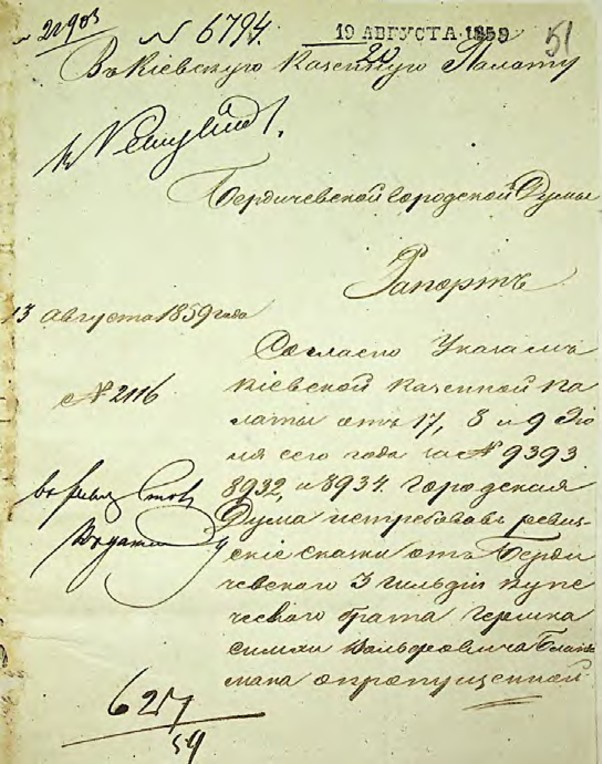 21903
№ 6794.
19 АВГУСТА 1859
51
20
Въ Кіевскую Казенную Палату
Бердичевской Городской Думы
Рапортъ
13 Августа 1859 года
№ 2116
Согласно Указамъ
Кіевской Казенной Па
латы отъ 17, 8 и 9 Ію
ля сего года за № 9393
8932, и 8934. Городская
Дума истребовавъ ревиз
скіе сказки отъ Берди
чевскаго 3 гильдіи купе
ческаго брата Гершка
Симхи Вольфовича
мана о пропущенной
627
59